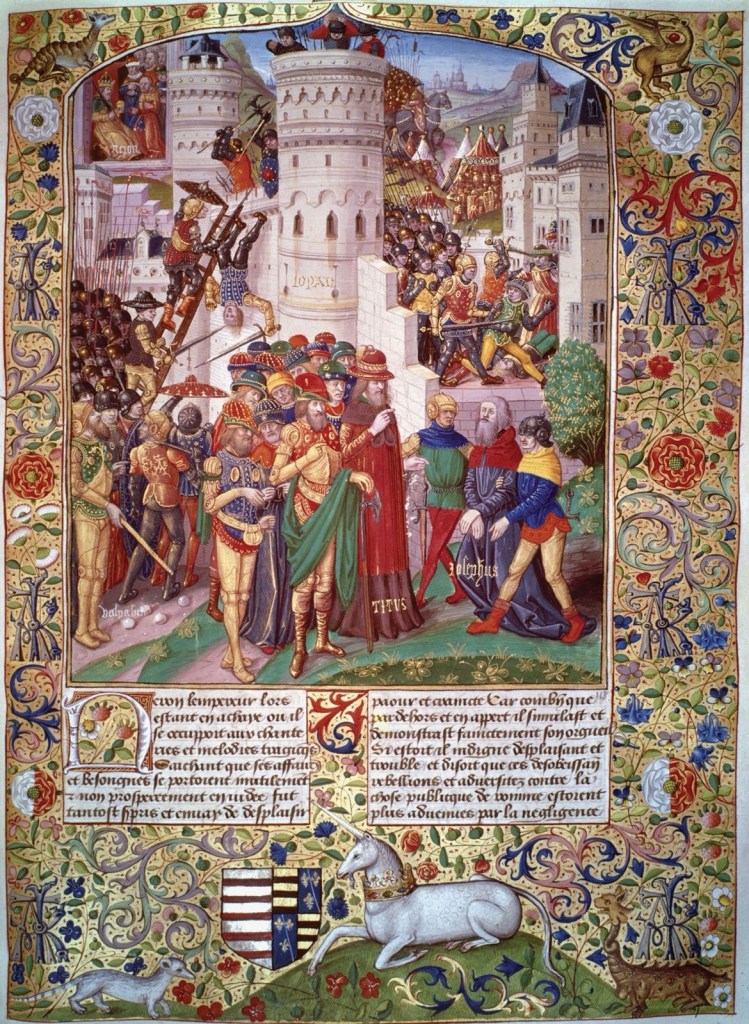 Neron
IOPAC
TITUS
Josephus
Neron lempereur lors
estant en achaye ou il
se occupoit aux chante
ries et melodies tragiques
Saichant que ses affaires
et besongnes se portoient inutilement
et non prosperement en iudee fut
tantost espris et enuay de desplaisir
paour et craincte Car combien que
par dehors et en appert il simulast et
demonstrast fainctement son orgueil
Si estoit il indigne desplaisant et
trouble et disoit que ces desobeissan
rebellions et aduersitez contre la
chose publique de romme estoient
plus aduenues par la negligence